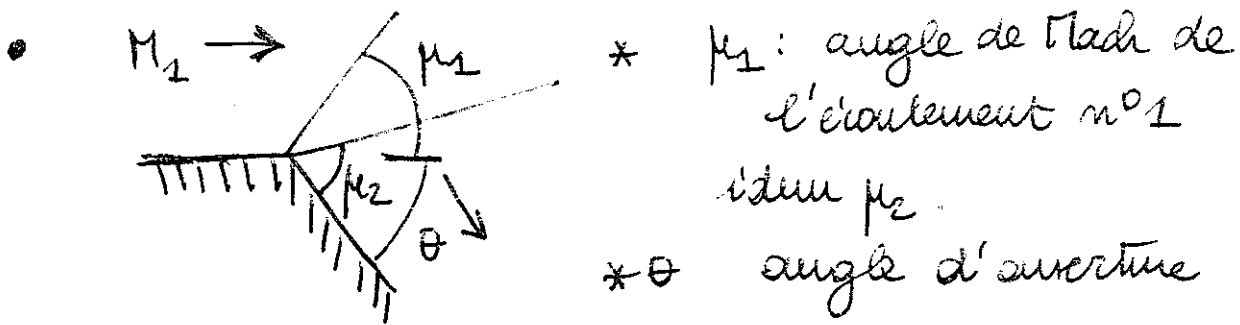 • M₁ → μ₁ * μ₁ : angle de Mach de
l'écoulement n°1
μ₂ idem μ₂.
θ * θ angle d'ouverture